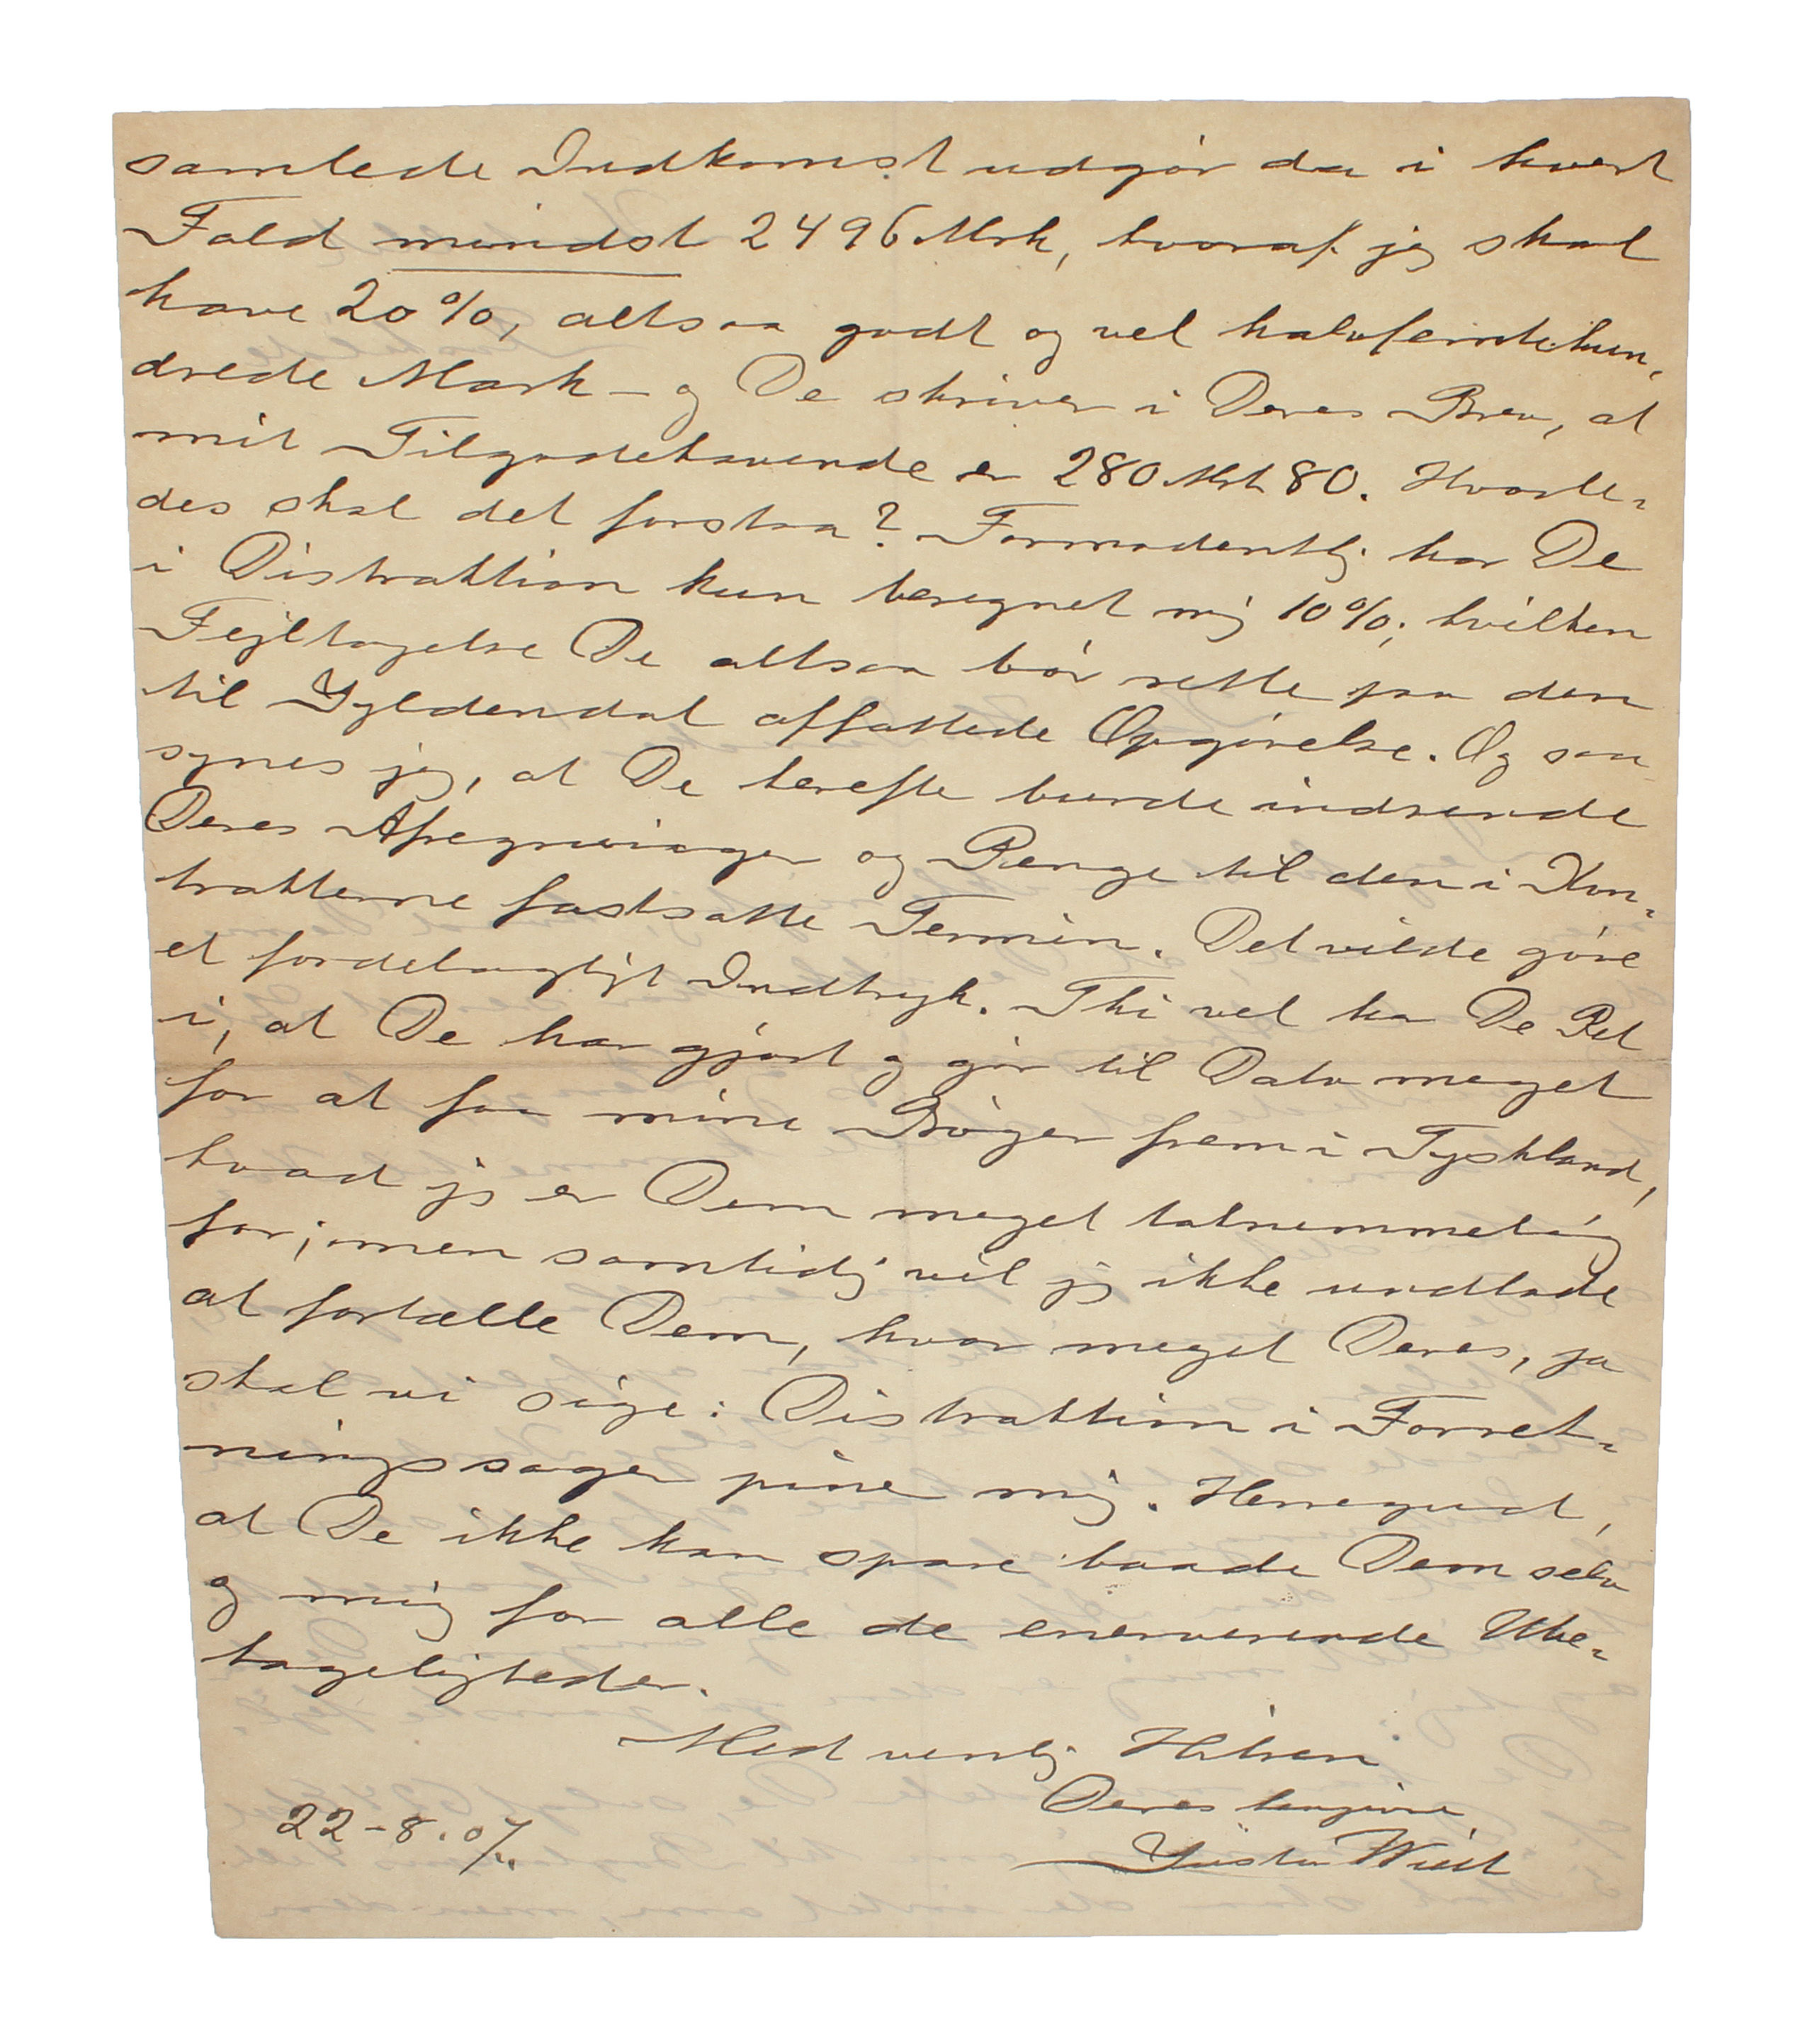 samlede Indkomst udgör da i hvert
Fald mindst 2496 Mrk, hvoraf jeg skal
have 20%, altsaa godt og vel halvfemtehun-
drede Mark – og De skriver i Deres Brev, at
mit Tilgodehavende er 280 Mrk 80. Hvorle-
des skal det forstaa? Formodentlig har De
i Distraktion kun beregnet mig 10%; hvilken
Fejltagelse De altsaa bör rette paa den
til Gyldendal affattede Opgörelse. Og saa
synes jeg, at De herefter burde indsende
Deres Afregninger og Penge til den i Kon-
trakterne fastsatte Termin. Det vilde göre
et fordelagtigt Indtryk. Thi vel har De Ret
i, at De har gjort og gör til Dato meget
for at faa mine Böger frem i Tyskland,
hvad jeg er Dem meget taknemmelig
for; men samtidig vil jeg ikke undlade
at fortælle Dem, hvor meget Deres, ja
skal vi sige: Distraktion i Forret-
ningssager piner mig. Herregud,
at De ikke kan spare baade Dem selv
og mig for alle de enerverende Ube-
hageligheder.
Med venlig Hilsen
Deres hengivne
22-8.07.
Gustav Wied